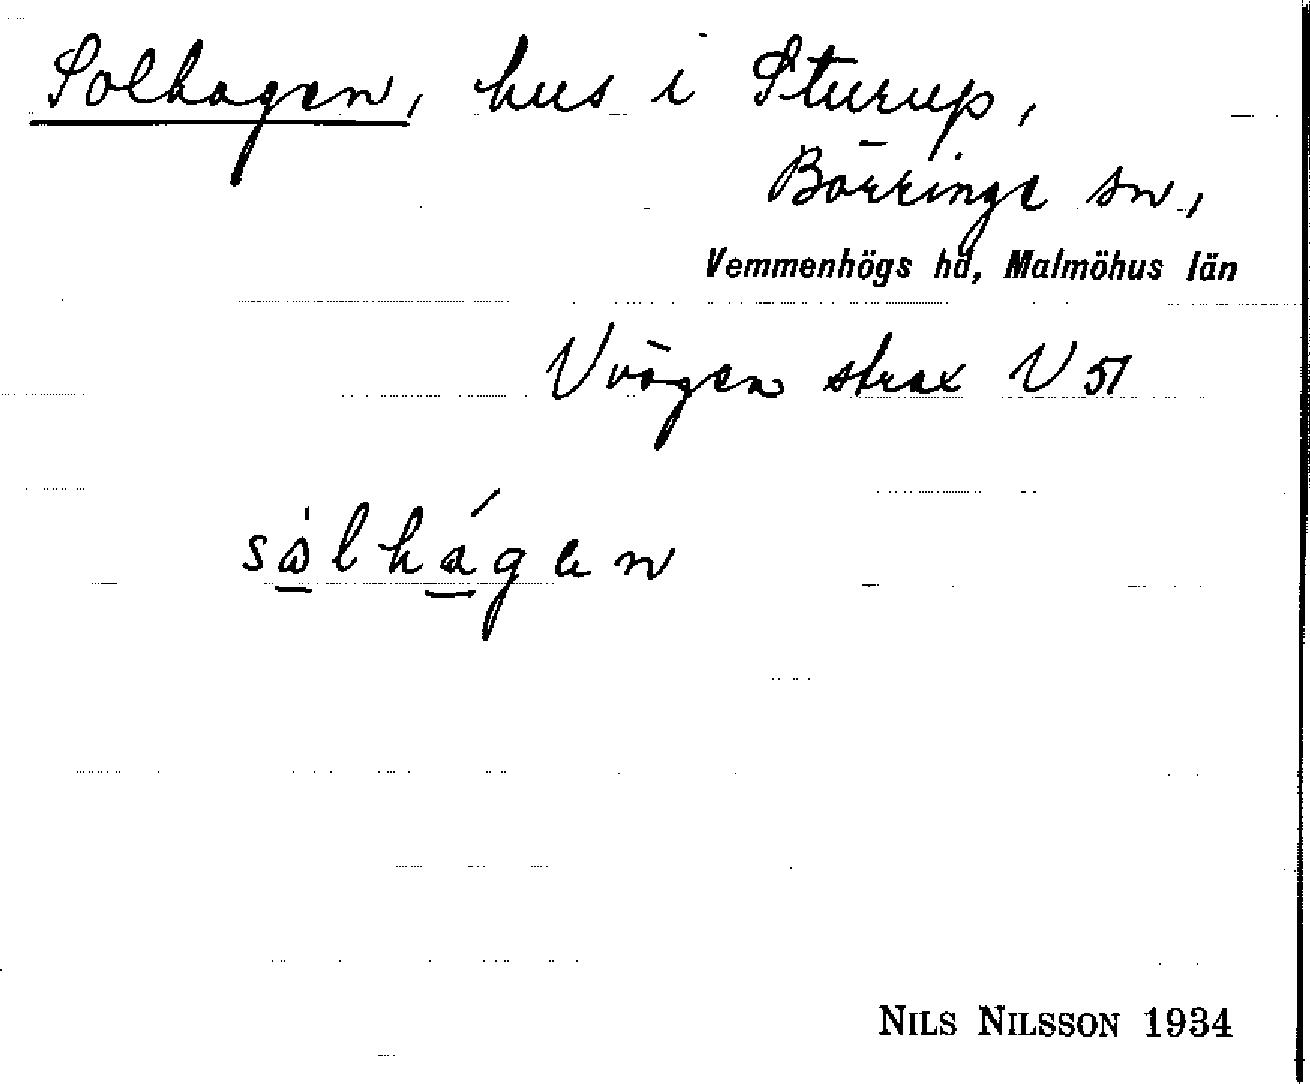 Solhagen, hus i Sturup,
Börringe sn,
Vemmenhögs hd, Malmöhus län
V vägen strax V 51
NILS NILSSON 1934